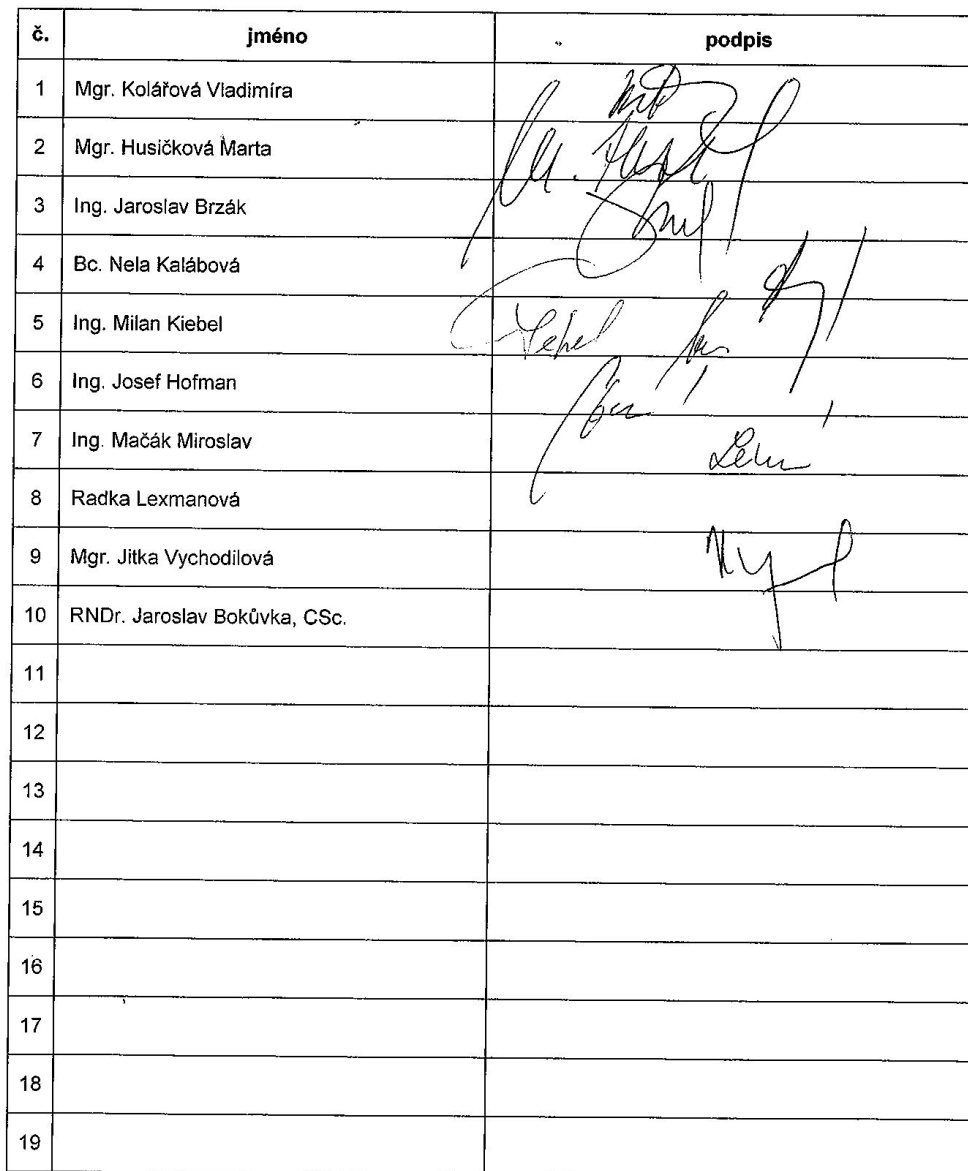 č. jméno podpis
1 Mgr. Kolářová Vladimíra
2 Mgr. Husičková Marta
3 Ing. Jaroslav Brzák
4 Bc. Nela Kalábová
5 Ing. Milan Kiebel
6 Ing. Josef Hofman
7 Ing. Mačák Miroslav
8 Radka Lexmanová
9 Mgr. Jitka Vychodilová
10 RNDr. Jaroslav Bokůvka, CSc.
11
12
13
14
15
16
17
18
19